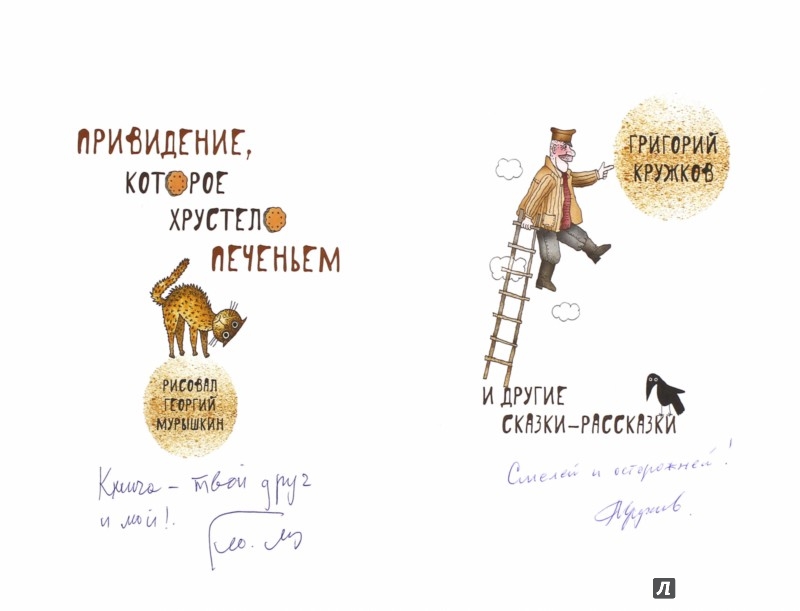 ПРИВИДЕНИЕ,
КОТОРОЕ
ХРУСТЕЛО
ПЕЧЕНЬЕМ
РИСОВАЛ
ГЕОРГИЙ
МУРЫШКИН
Книга – твой друг
и мой!.
ГРИГОРИЙ
КРУЖКОВ
И ДРУГИЕ
СКАЗКИ–РАССКАЗКИ
Смелей и осторожней!
Кружков.
Л